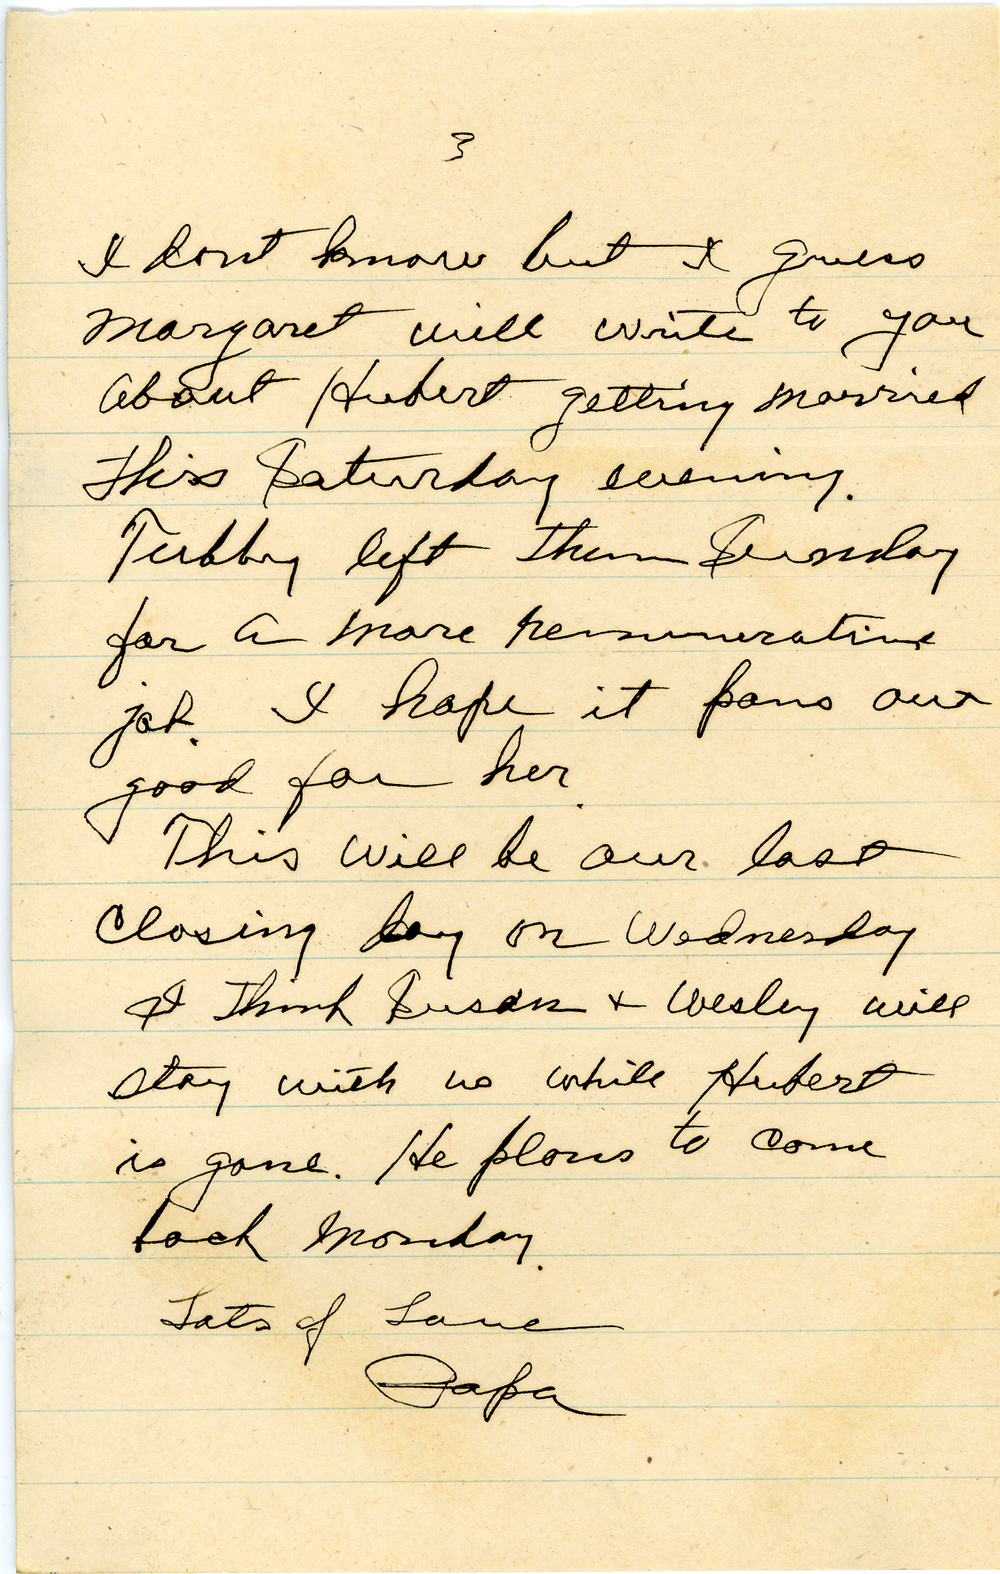 3
I dont know but I guess
Margaret will write to you
About Hubert getting married
this Saturday evening.
Tubby left them Sunday
for a more remunerative
job. I hope it pans out
good for her.
This will be our last
Closing day on Wednesday
I think Susan + Wesley will
stay with us while Hubert
is gone. He plans to come
back Monday.
Lots of Love
Papa